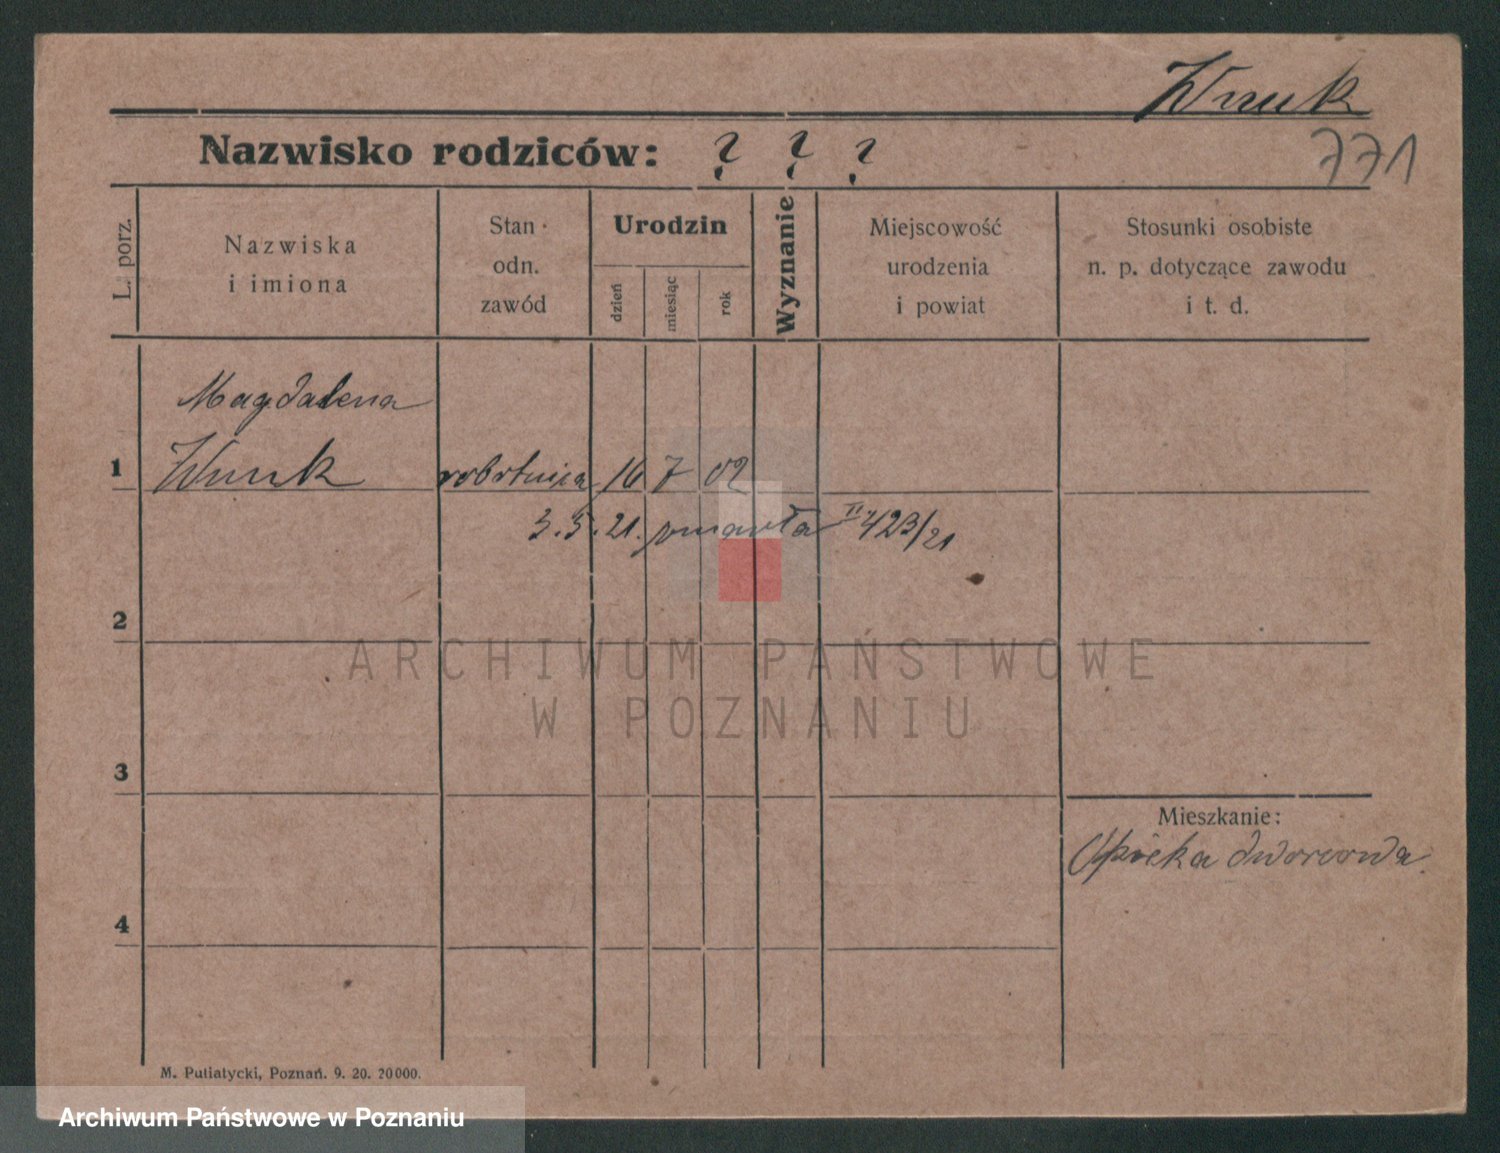 Wnuk
Nazwisko rodziców: ? ? ?
771
L. porz.
Nazwiska
i imiona
Stan
odn.
zawód
Urodzin
dzień
miesiąc
rok
Wyznanie
Miejscowość
urodzenia
i powiat
Stosunki osobiste
n. p. dotyczące zawodu
i t. d.
Magdalena
1 Wnuk robotnica 16 7 02
3.5.21. zmarła II 423/21
2
ARCHIWUM PAŃSTWOWE
W POZNANIU
3
Mieszkanie:
Opieka dworcowa
4
M. Putiatycki, Poznań. 9. 20. 20000.
Archiwum Państwowe w Poznaniu